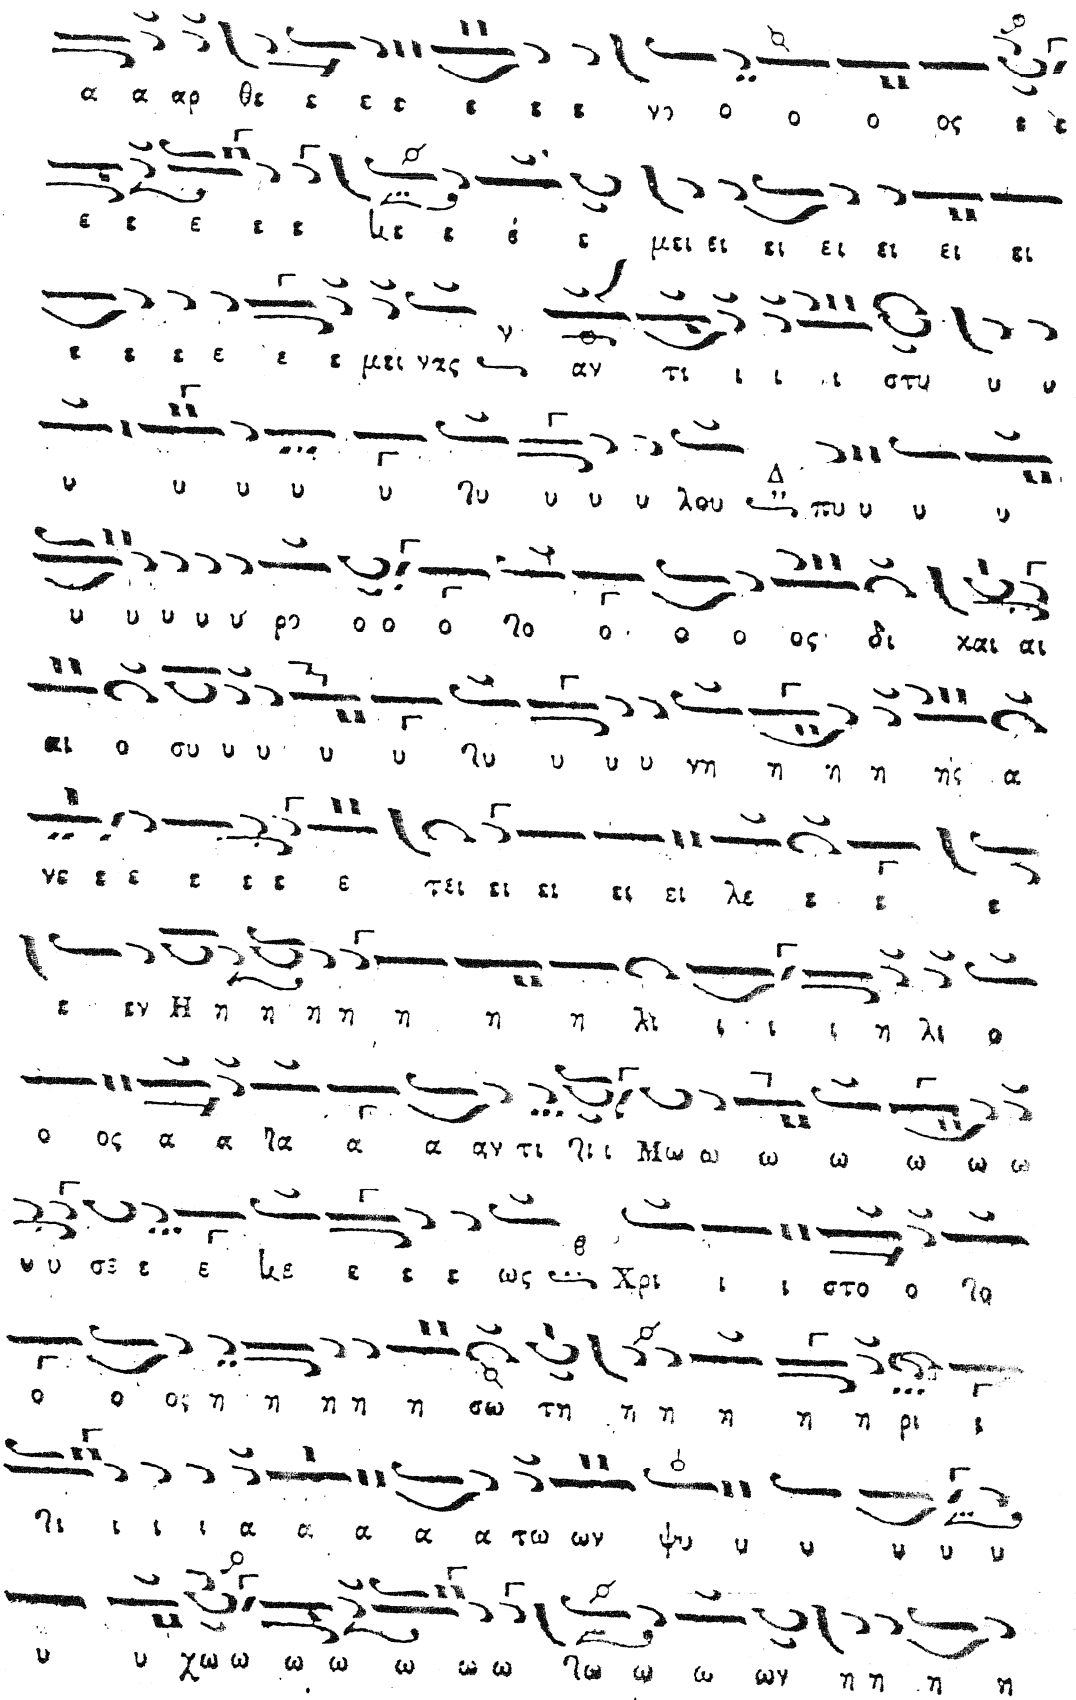 α α αρ θε ε ε ε ε ε ε νο ο ο ο ος ε ε
ε ε ε ε ε κε ε έ ε μει ει ει ει ει ει ει
ε ε ε ε ε ε μει νας ν αν τι ι ι ι στυ υ υ
υ υ υ υ υ τυ υ υ υ λου Δ πυ υ υ υ
υ υ υ υ υ ρο ο ο ο το ο ο ο ος δι και αι
αι ο συ υ υ υ υ τυ υ υ υ νη η η η ης α
νε ε ε ε ε ε ε τει ει ει ει ει λε ε ε ε
ε εν Η η η η η η η η λι ι ι ι η λι ο
ο ος α α τα α α αν τι τι ι Μω ω ω ω ω ω ω
υ υ σε ε ε κε ε ε ε ως β Χρι ι ι στο ο το
ο ο ος η η η η η σω τη η η η η η ρι ι
τι ι ι ι α α α α α τω ων ψυ υ υ υ υ υ
υ υ χω ω ω ω ω ω ω τω ω ω ων η η η η